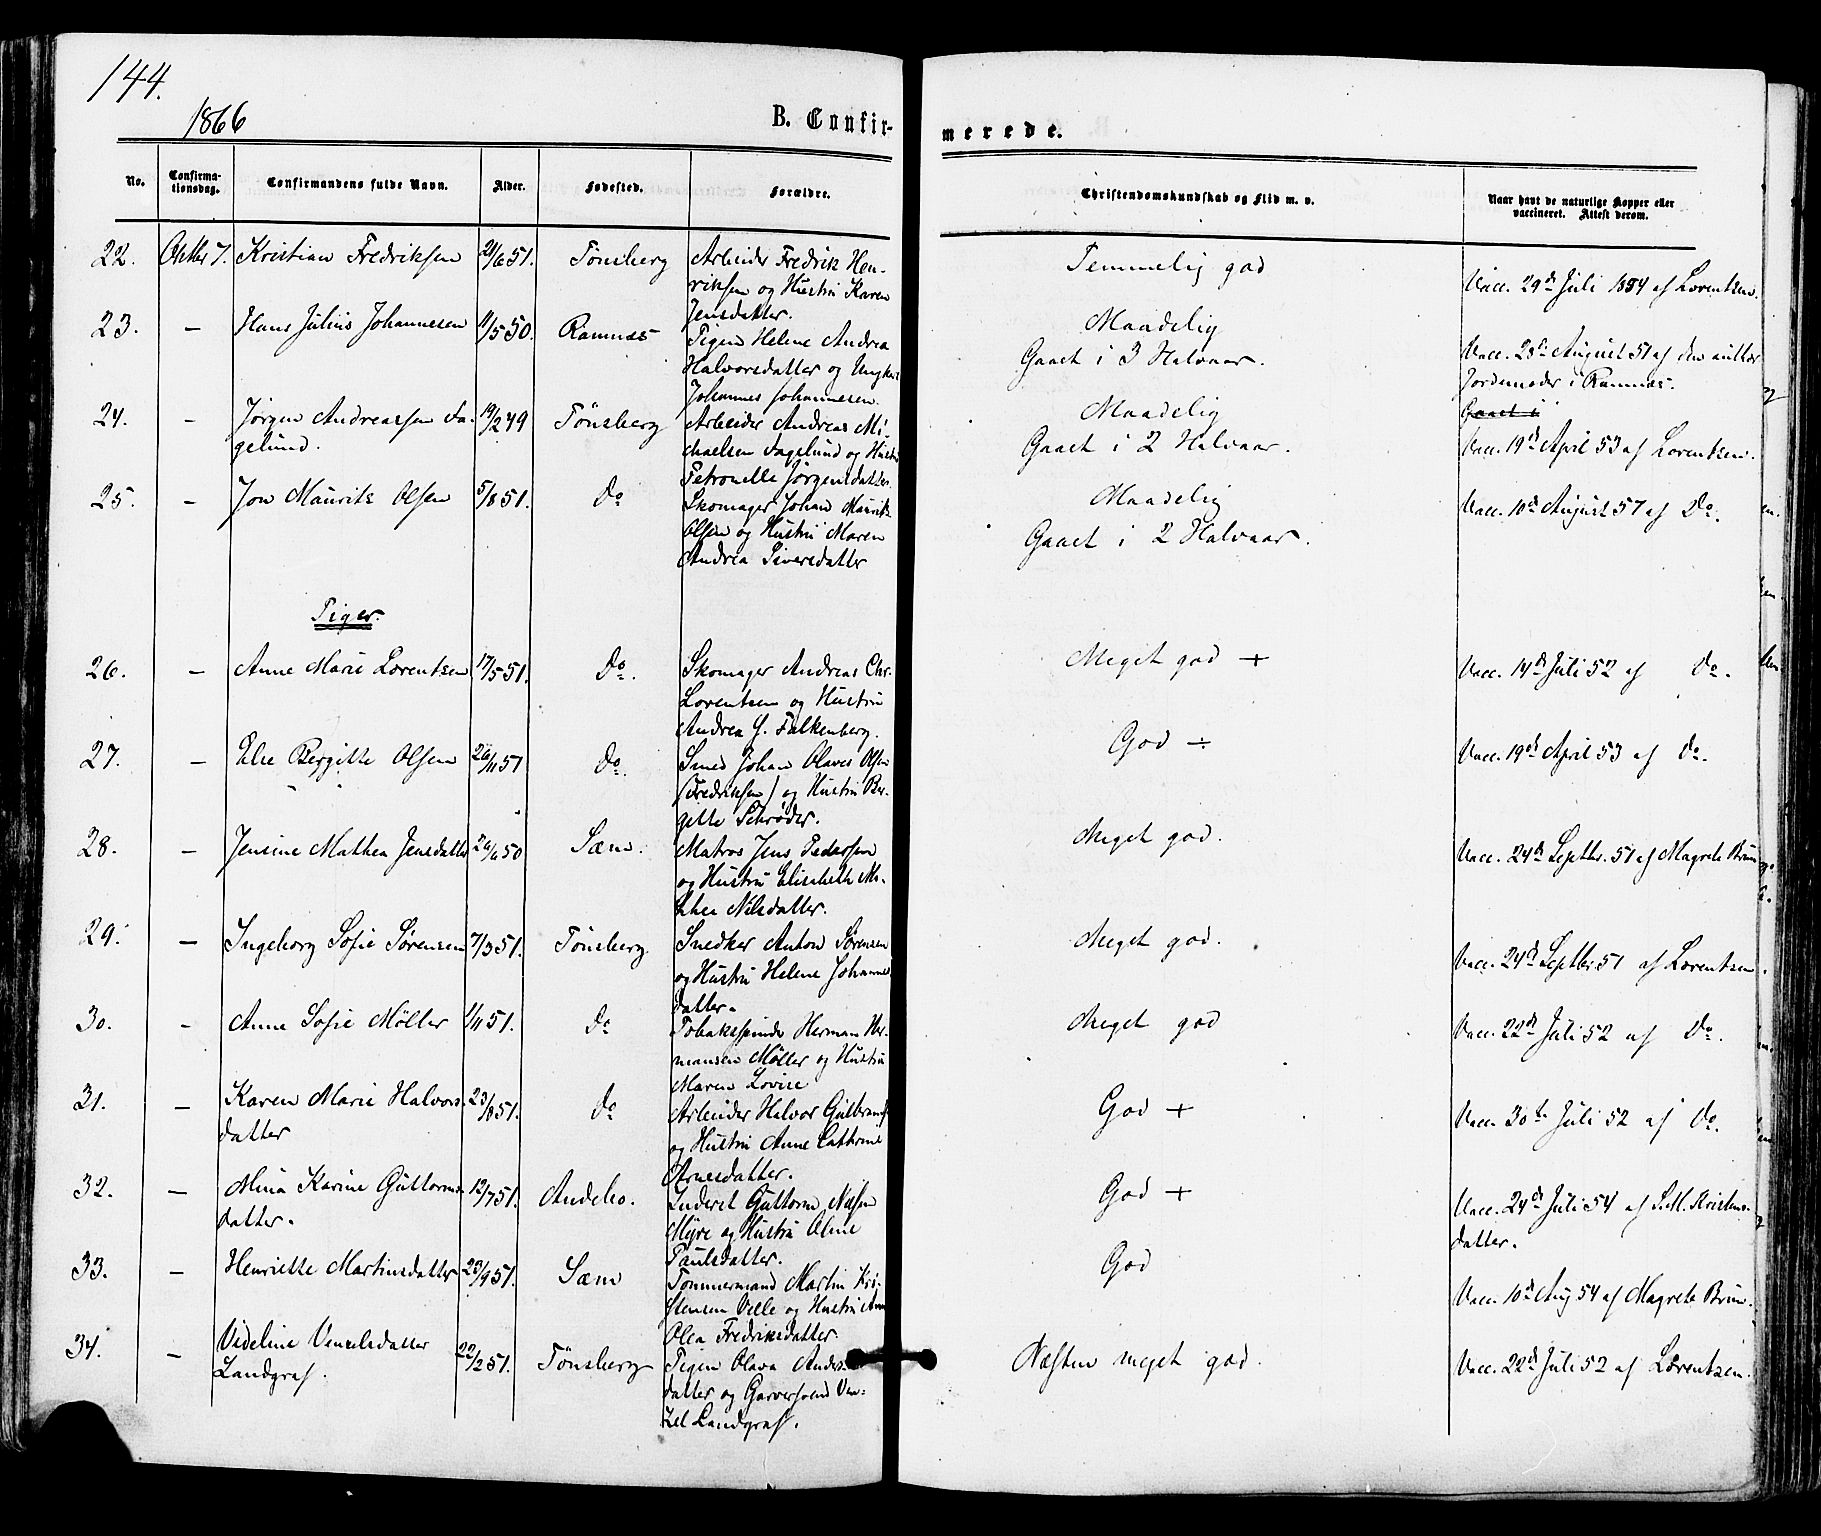 144.
1866
B. Confirmerede.
No. Confirmationsdag. Confirmandens fulde Navn. Alder. Fødested. Forældre. Christendomskundskab og Flid m. v. Naar havt de naturlige Kopper eller vaccineret. Attest derom.
22. Oktbr 7. Kristian Fredriksen 21/6 51. Tönsberg Arbeider Fredrik Hen- Temmelig god Vacc. 29de Juli 1854 af Lorentsen.
riksen og Hustru Karen
Jensdatter.
23. — Hans Julius Johannesen 11/5 50. Ramnæs Pigen Helene Andrea Maadelig Vacc. 28de August 51 af den autor
Halvorsdatter og Ungkarl Gaaet i 3 Halvaar. Jordemoder i Ramnæs.
Johannes Johannesen.
24. — Jørgen Andreassen Fa- 19/2 49 Tönsberg Arbeider Andreas Mi- Maadelig Gaaet i
gelund. chaelsen Fagelund og Hustru Gaaet i 2 Halvaar. Vacc. 19de April 53 af Lorentsen.
Petronelle Jørgensdatter.
25. — Jon Mauritz Olsen 5/8 51. Do Skomager Johan Mauritz Maadelig Vacc. 10de August 57 af Do.
Olsen og Hustru Maren Gaaet i 2 Halvaar.
Andrea Siversdatter
Piger.
26. — Anne Marie Lorentsen 17/5 51. Do. Skomager Andreas Chr. Meget god + Vacc. 14de Juli 52 af Do.
Lorentsen og Hustru
Andrea G. Falkenberg.
27. — Else Bergitte Olsen 26/11 51 Do. Smed Johan Olaves Olsen God ÷ Vacc. 19de April 53 af Do.
(Fredriksen) og Hustru Ber-
gitte Schrøder.
28. — Jensine Mathea Jensdatter 26/6 50 Sæm. Matros Jens Pedersen Meget god. Vacc. 24de Septbr. 51 af Magrete Brun
og Hustru Elisabeth Ma-
thea Nilsdatter.
29. — Ingeborg Sofie Sørensen 7/3 51. Tönsberg. Snedker Anton Sørensen Meget god. Vacc. 24de Septbr. 51 af Lorentsen.
og Hustru Helene Johannes
datter.
30. — Anne Sofie Möller 1/11 51. Do Tobaksspinder Herman Her- Meget god Vacc. 22de Juli 52 af Do.
mansen Möller og Hustru
Maren Lovise
31. — Karen Marie Halvors- 23/8 51. Do Arbeider Halvor Gulbrands. God + Vacc. 30te Juli 52 af Do.
datter og Hustru Anne Cathrine
Arnesdatter.
32. — Mina Karine Guttorms- 12/7 51. Andebo. Inderst Guttorm Nilsen God + Vacc. 24de Juli 54 af S. M. Kristens-
datter. Myre og Hustru Oline datter.
Paulsdatter.
33. — Henriette Martinsdatter 23/9 51. Sæm Tømmermand Martin Kri- God Vacc. 10de Aug 54 af Magrete Brun.
stensen Velle og Hustru Anne
Olea Fredriksdatter.
34. — Videline Venzelsdatter 22/2 51. Tönsberg Pigen Olava Anders- Næsten meget god. Vacc. 22de Juli 52 af Lorentsen.
Landgraf. datter og Garversvend Ven-
zel Landgraf.